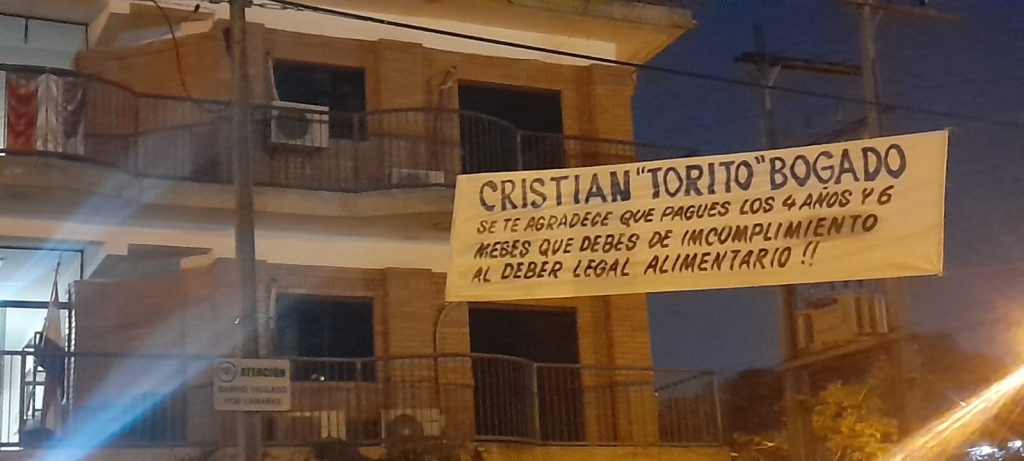 CRISTIAN "TORITO" BOGADO
SE TE AGRADECE QUE PAGUES LOS 4 AÑOS Y 6
MEBES QUE DEBES DE IMCUMPLIMIENTO
AL DEBER LEGAL ALIMENTARIO !!
ATENCIÓN
BARRIO VIGILADO
POR CAMARAS